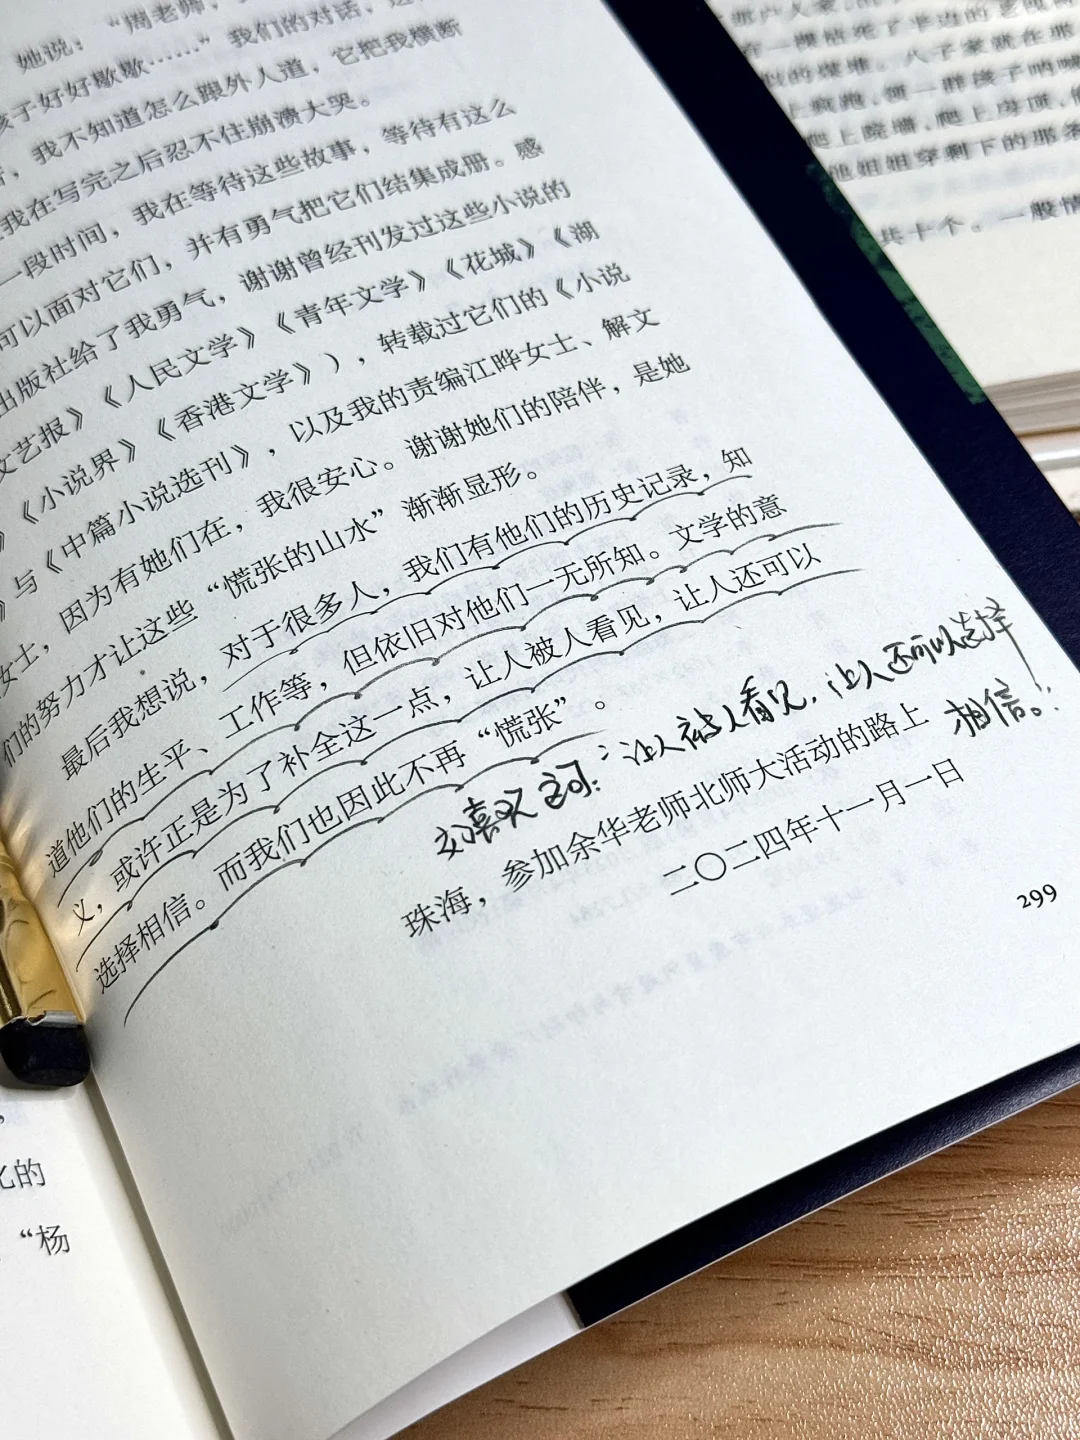 她说：“周老师，
孩子好好歇歇……”我们的对话，这
，我不知道怎么跟外人道，它把我横断
我在写完之后忍不住崩溃大哭。
一段时间，我在等待这些故事，等待有这么
可以面对它们，并有勇气把它们结集成册。感
出版社给了我勇气，谢谢曾经刊发过这些小说的
文艺报》《人民文学》《青年文学》《花城》《湖
》《小说界》《香港文学》），转载过它们的《小说
》与《中篇小说选刊》，以及我的责编江晔女士、解文
女士，因为有她们在，我很安心。谢谢她们的陪伴，是她
们的努力才让这些“慌张的山水”渐渐显形。
最后我想说，对于很多人，我们有他们的历史记录，知
道他们的生平、工作等，但依旧对他们一无所知。文学的意
义，或许正是为了补全这一点，让人被人看见，让人还可以
选择相信。而我们也因此不再“慌张”。
喜欢这句：“让人被人看见，让人还可以选择
相信。”
珠海，参加余华老师北师大活动的路上
二〇二四年十一月一日
299
，
化的
“杨
在一棵枯死了半边的老
似的煤堆。八子家就在那
上疯跑，领一群孩子呐喊
爬上院墙，爬上房顶，
他姐姐穿剩下的那条
共十个。一般情